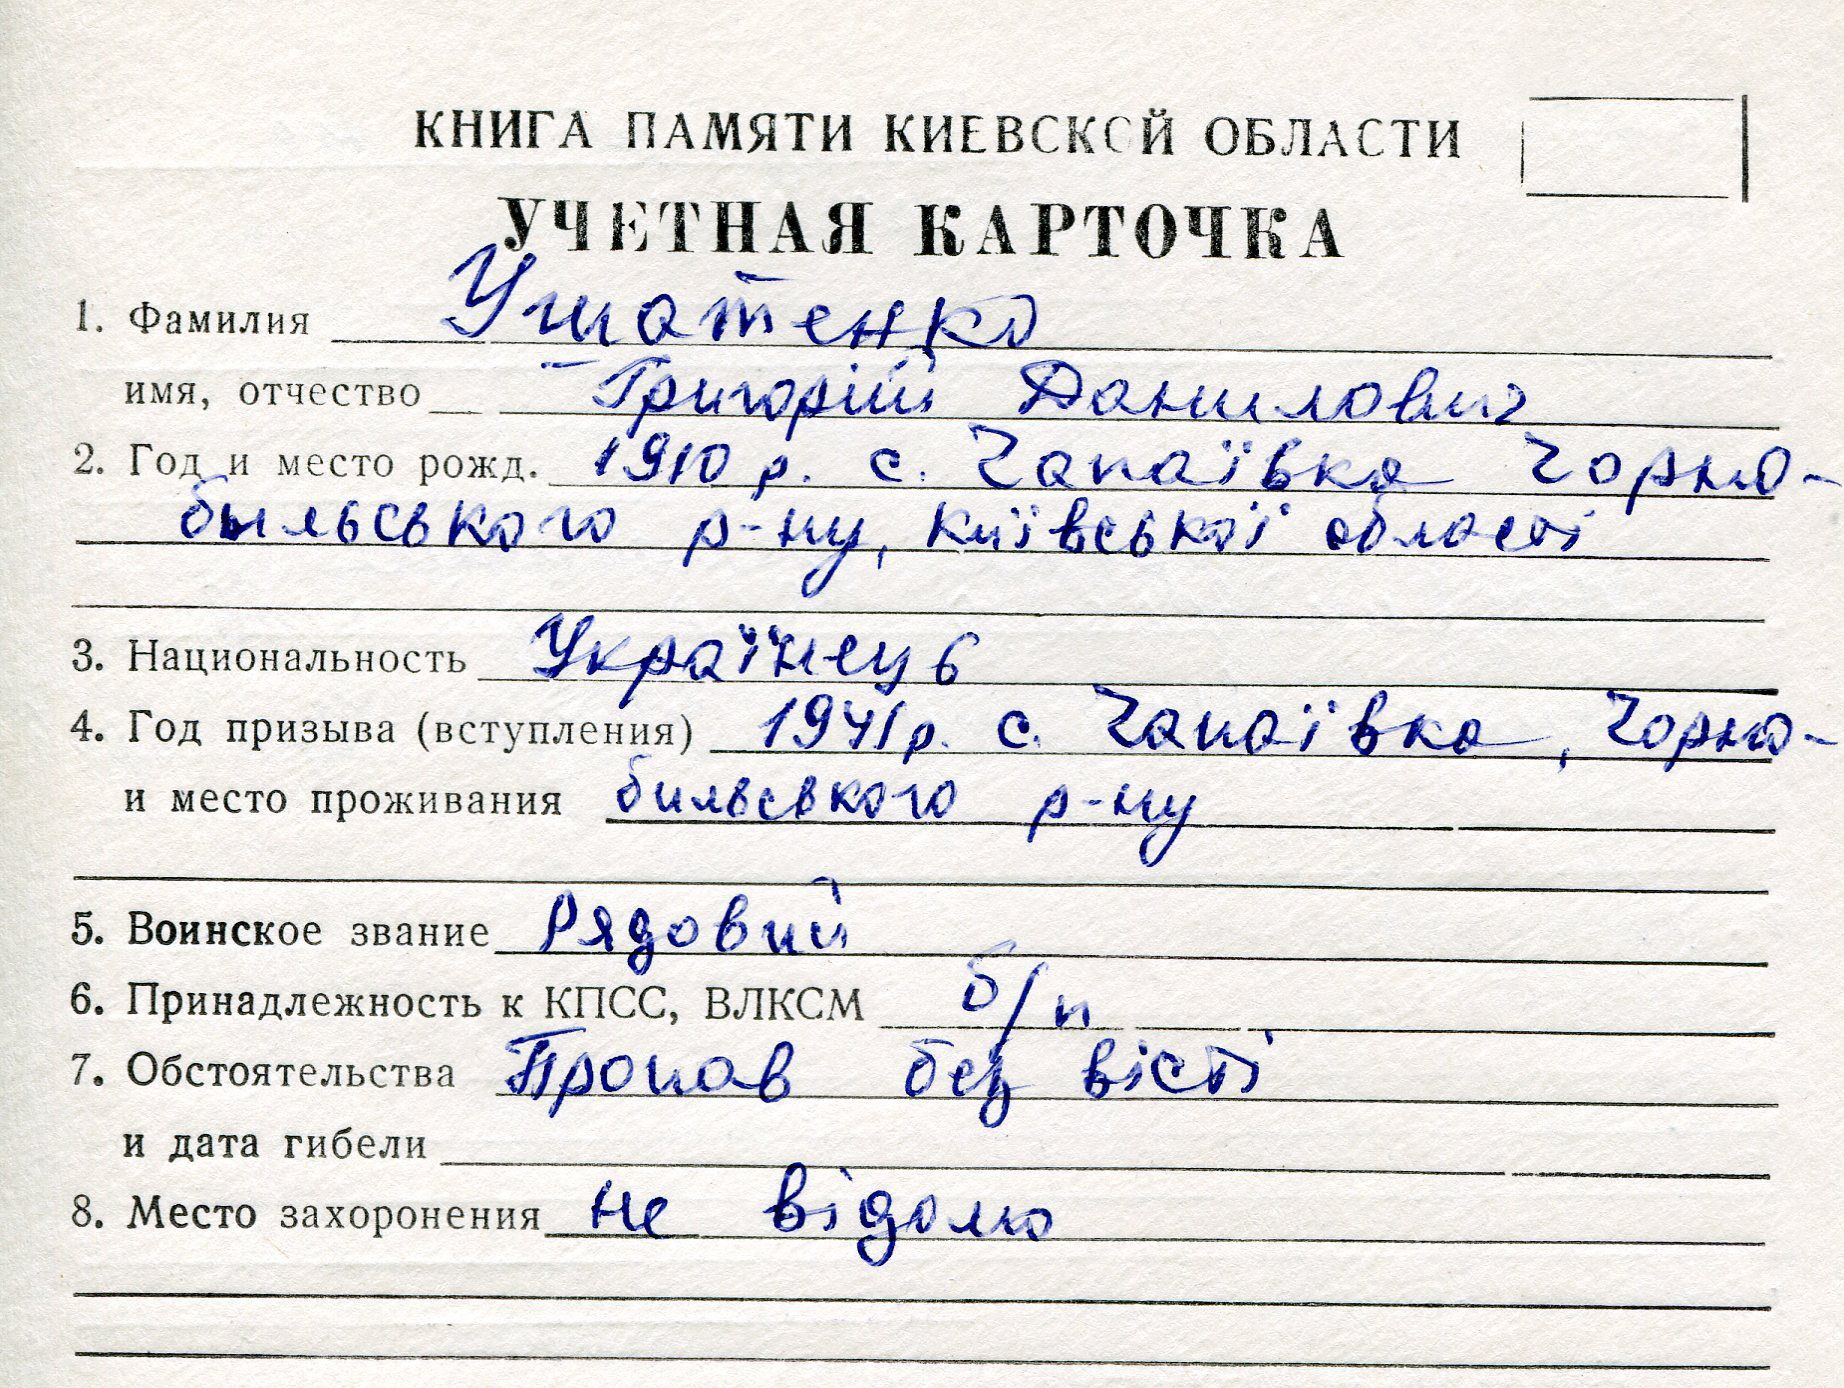 КНИГА ПАМЯТИ КИЕВСКОЙ ОБЛАСТИ
УЧЕТНАЯ КАРТОЧКА
1. Фамилия Ушатенко
имя, отчество Григорій Данилович
2. Год и место рожд. 1910 р. с. Чапаївка Чорно-
бильського р-ну, Київської області
3. Национальность Українець
4. Год призыва (вступления) 1941 р. с. Чапаївка, Чорно-
и место проживания бильського р-ну
5. Воинское звание Рядовий
6. Принадлежность к КПСС, ВЛКСМ б/п
7. Обстоятельства Пропав без вісті
и дата гибели
8. Место захоронения не відомо